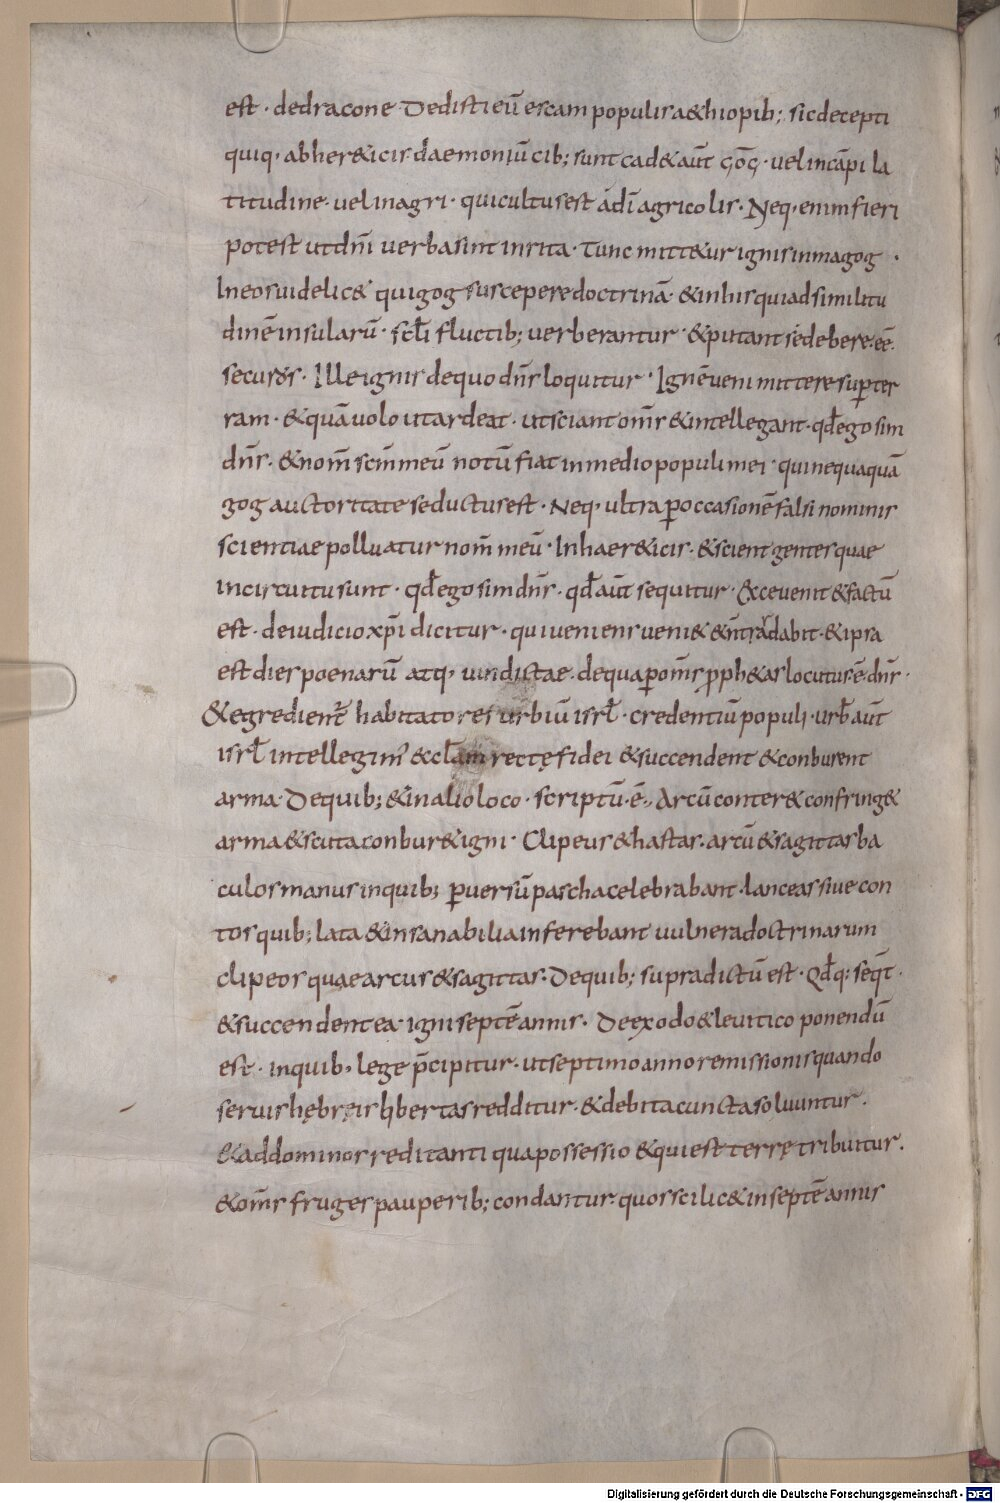 est · dedracone · Dedisti eū escam populis a&hiopib; sic decepti
quiq, ab her&icis daemoniū cib; sunt cad& aūt gog · uel in cāpi la
titudine · uel in agri · qui cultus est a dī agricolis · Neq, enim fieri
potest ut dnī uerba sint inrita · Tunc mitt&ur ignis in magog ·
In eos uidelic& qui gog suscepere doctrinā · & in his qui ad similitu
dinē insularū · scłi fluctib; uerberantur · & putant se debere ·ēē·
securos · Ille ignis de quo dn̄s loquitur · Ignē ueni mittere super ter
ram · & quā uolo ut ardeat · ut sciant om̄s & intellegant · qđ ego sim
dn̄s · & nom̄ scm̄ meū notū fiat in medio populi mei · qui nequaquā
gog auctoritate seductus est · Neq, ultra ꝑ occasionē falsi nominis
scientiae polluatur nom̄ meū · In haer&icis · & scient gentes quae
in circuitu sunt · qđ ego sim dn̄s · qđ aūt sequitur · Ecce uenit & factū
est · de iudicio xp̄i dicitur · qui ueniens ueni& & ñ tardabit · & ipsa
est dies poenarū atq, uindictae · de qua ꝑ om̄s proph&as locutus ·ē· dn̄s ·
& egredient̄ habitatores urbiū isrł · credentiū populi · urb̄ aūt
isrł intellegim' eccłam rectę fidei & succendent & conburent
arma · De quib; & in alio loco · scriptū ·ē· Arcū conter& confring&
arma & scuta conbur& igni · Clipeus & hastas · arcū & sagittas ba
culos manus in quib; ꝑuersū pascha celebrabant · lanceas siue con
tos quib; lata & insanabilia inferebant uulnera doctrinarum
clipeos quae arcus & sagittas · De quib; supra dictū est · Qđq: seqt̄ ·
& succendent ea · igni septē annis · De exodo & leuitico ponendū
est · in quib, lege p̄cipitur · ut septimo anno remissionis quando
seruis hębręis libertas redditur · & debita cuncta soluuntur ·
& ad dominos redit antiqua possessio & quies terrę tribuitur ·
& om̄s fruges pauperib; condantur · quos scilic& in septē annis
Digitalisierung gefördert durch die Deutsche Forschungsgemeinschaft - DFG